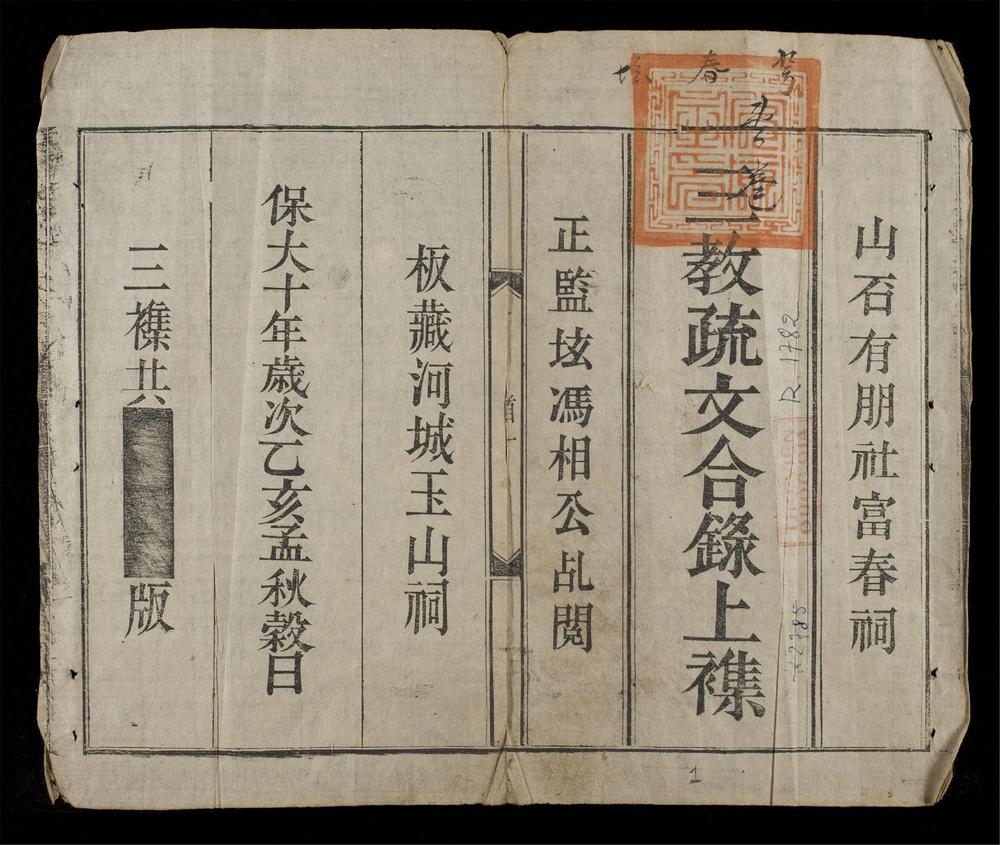 春
壹卷
山石有朋社富春祠
三教疏文合錄上襍
正監坛馮相公乩閱
板藏河城玉山祠
保大十年歲次乙亥孟秋穀日
三襍共
版
R 1782
R2785
1